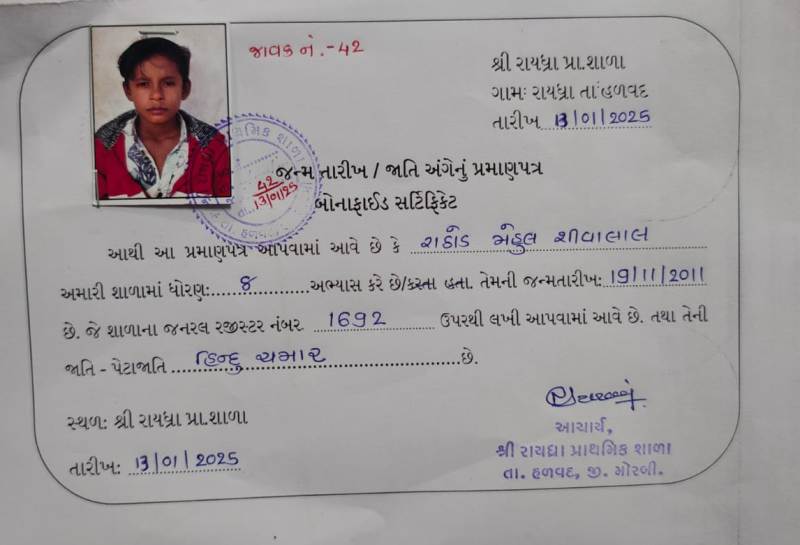 જાવક નં.-42
શ્રી રાયધ્રા પ્રા.શાળા
ગામઃ રાયધ્રા તાઃહળવદ
તારીખ 13/01/2025
પ્રાથમિક શાળા
42
13/01/25
તા. હળવદ
જન્મ તારીખ / જાતિ અંગેનું પ્રમાણપત્ર
બોનાફાઈડ સર્ટિફિકેટ
આથી આ પ્રમાણપત્ર આપવામાં આવે છે કે રાઠોડ મેહુલ શીવાલાલ
અમારી શાળામાં ધોરણ: 8 અભ્યાસ કરે છે/કરતા હતા. તેમની જન્મતારીખ: 19/11/2011
છે. જે શાળાના જનરલ રજીસ્ટર નંબર 1692 ઉપરથી લખી આપવામાં આવે છે. તથા તેની
જાતિ - પેટાજાતિ હિન્દુ ચમાર છે.
સ્થળ: શ્રી રાયધ્રા પ્રા.શાળા
તારીખ: 13/01/2025
આચાર્ય,
શ્રી રાયધ્રા પ્રાથમિક શાળા
તા. હળવદ, જી. મોરબી.